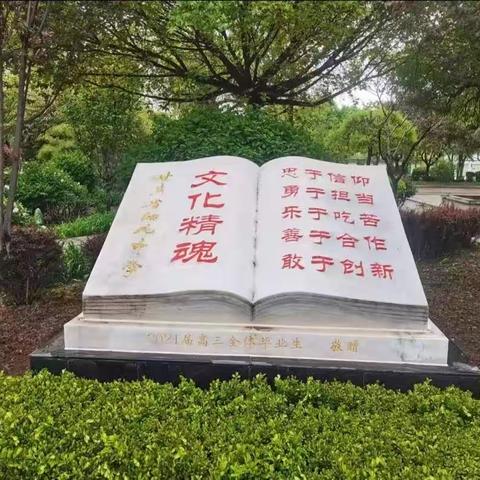 文化精魂
忠于信仰
勇于担当
乐于吃苦
善于合作
敢于创新
2021届高三全体毕业生 敬赠